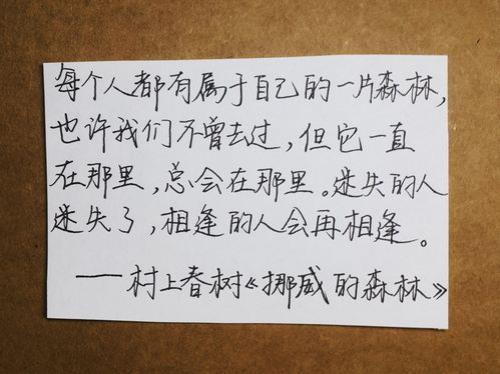 每个人都有属于自己的一片森林,
也许我们不曾去过,但它一直
在那里,总会在那里。迷失的人
迷失了,相逢的人会再相逢。
——村上春树《挪威的森林》